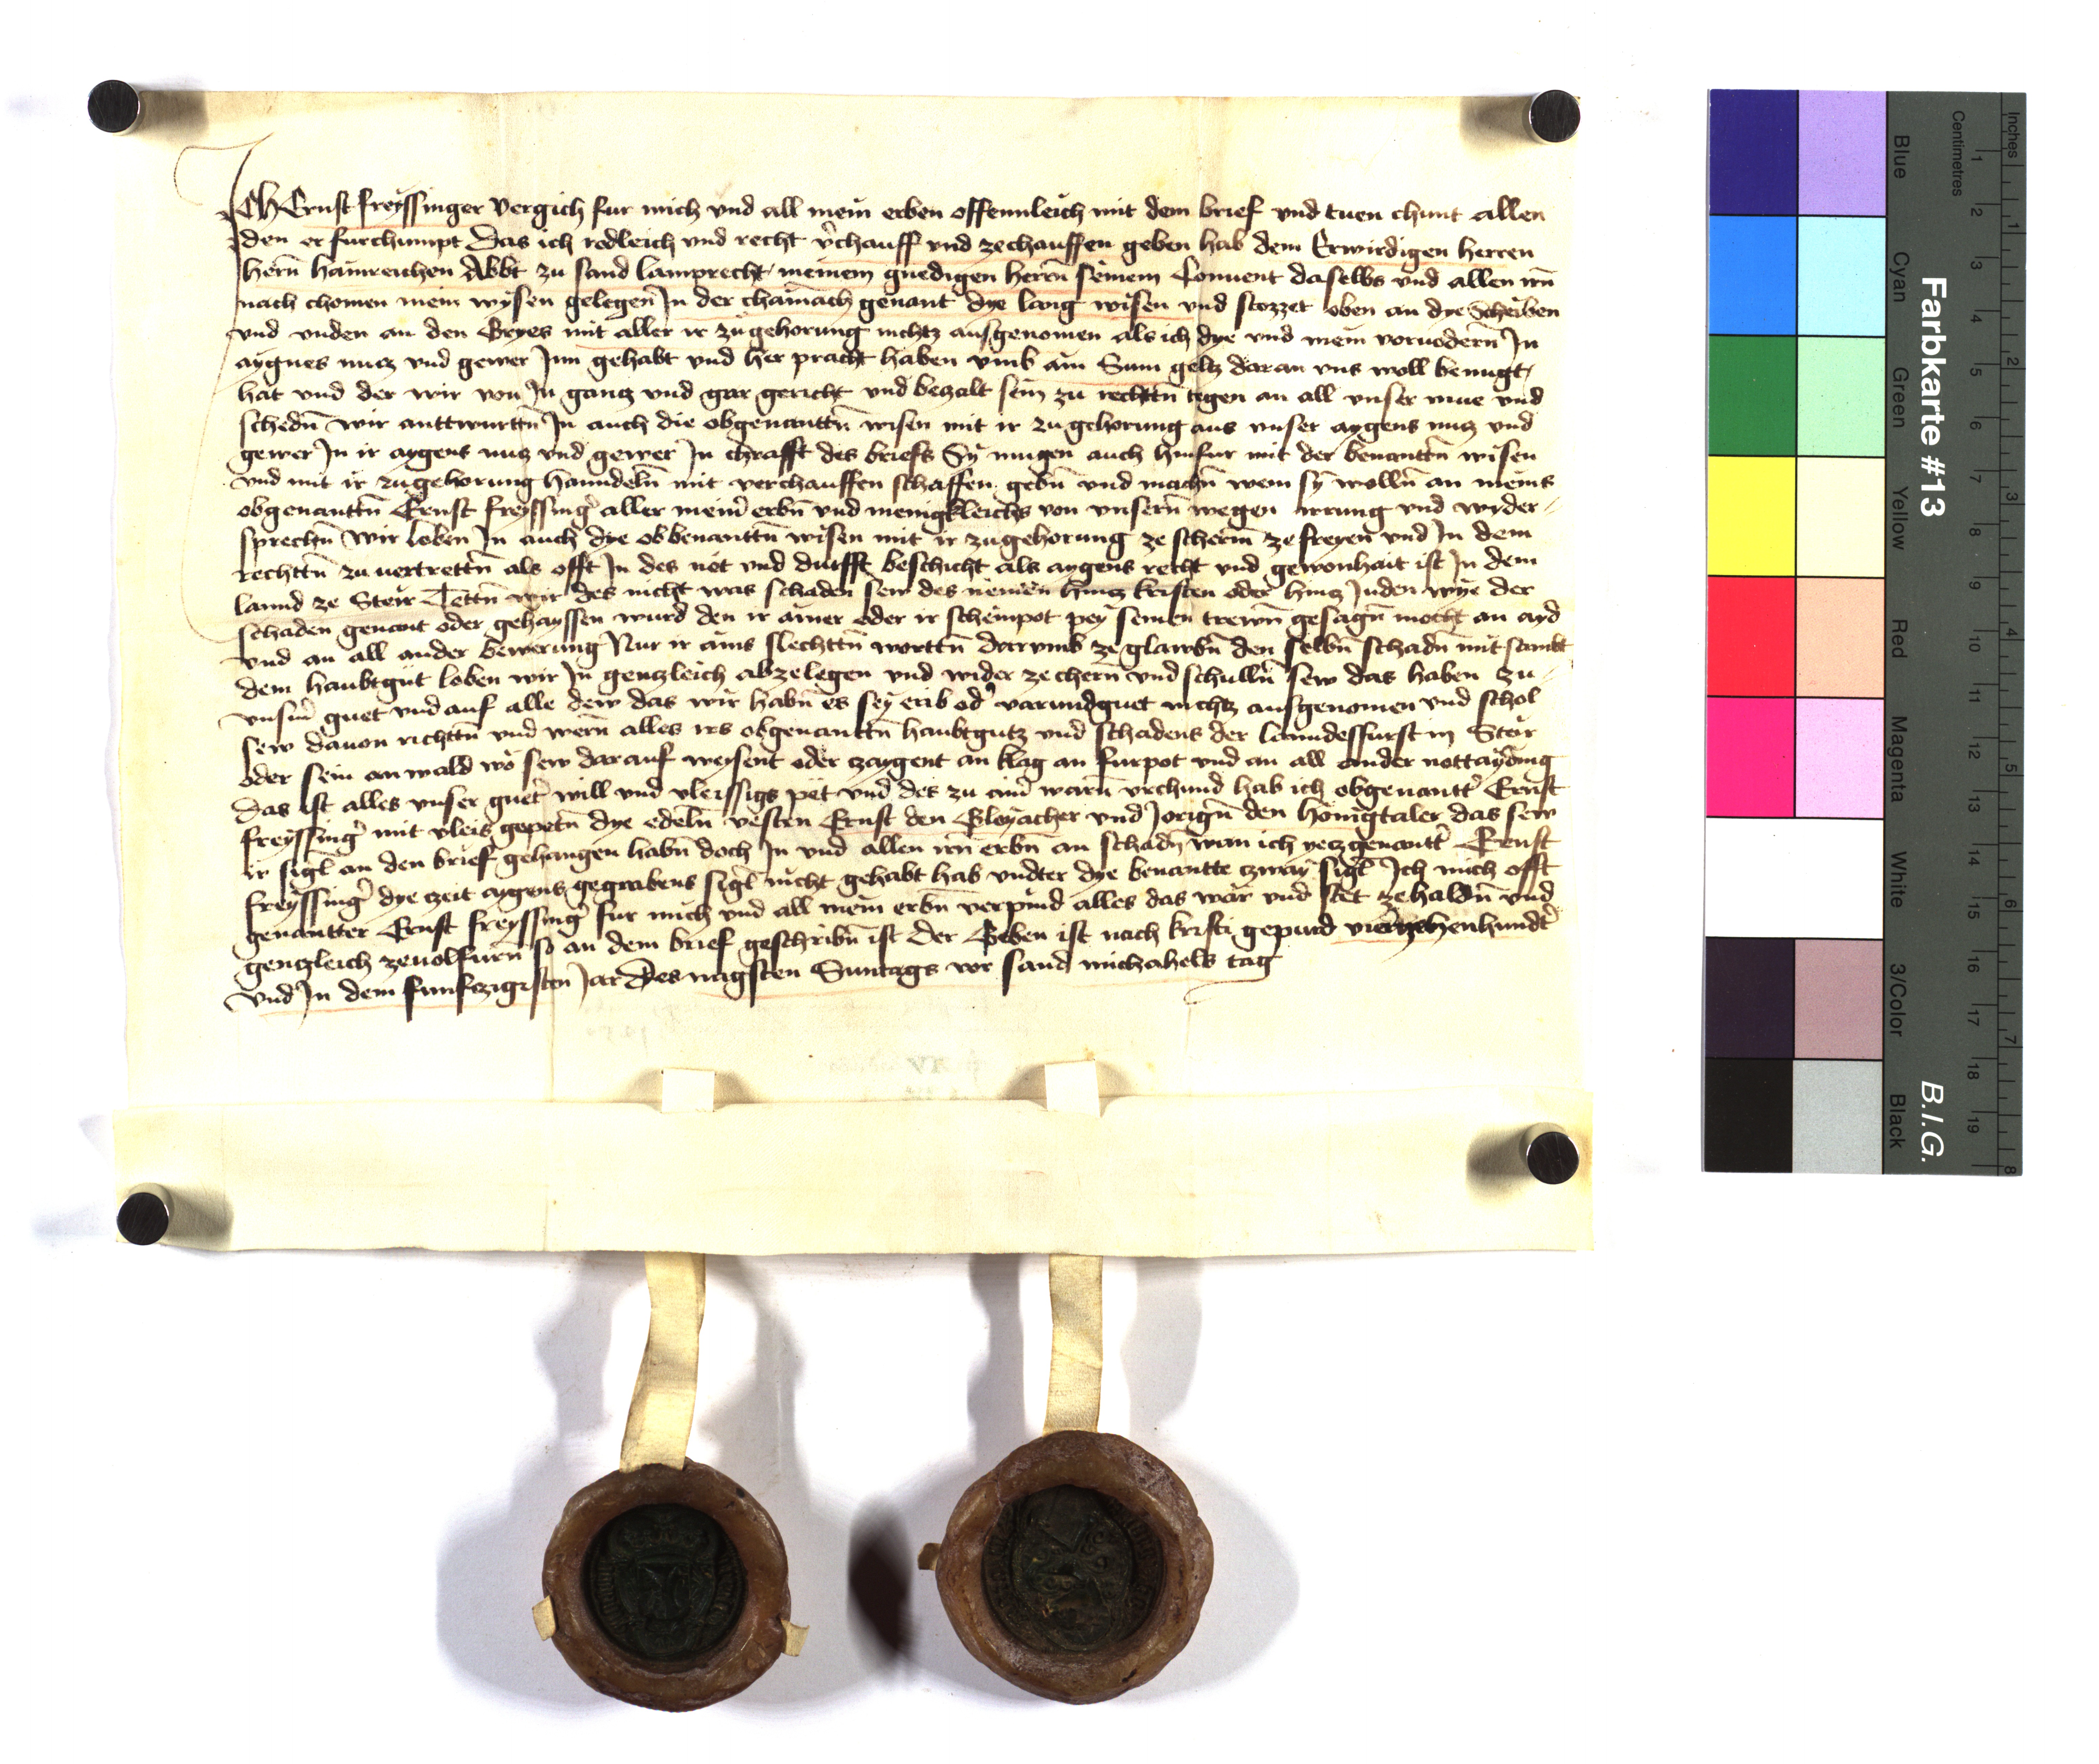 ICh Ernst freyssinger vergich fur mich vnd all mein erben offennleich mit dem brief vnd tuen chunt allen
den er furchumpt Das ich redleich vnd recht v̉chauff vnd zechauffen geben hab dem Erwirdigen herren
hern̄ hainreichen Abbt zu sand lamprecht meinem gnedigen hern̄ seinem Conuent daselbs vnd allen irn̄
nach chomen mein wysen gelegen In der chainach genant dye lang wisen vnd stozzet oben an dye Scheiben
vnd vnden an den Gryes mit aller ir zugehorung nichtz ausgenomen als ich dye vnd mein voruodern̄ In
aygnes nucz vnd gewer Inn gehabt vnd her pracht haben vmb ain Sum geltz daran vns woll benugt
hat vnd der wir von In gancz vnd gar gericht vnd beczalt sein zu rechttn̄ tegen an all vnser mue vnd
schedn̄ wir anttwurttn̄ In auch die obgenanttn̄ wisen mit ir zugehorung aus vnser aygens nucz vnd
gewer In ir aygens nucz vnd gewer In chrafft des briefs Sy mugen auch hinfur mit der benanttn̄ wisen
vnd mit ir zugehorung hanndeln̄ mit verchauffen schaffen gebn̄ vnd machn̄ wem sy wolln̄ an meins
obgenanttn̄ Ernst freyssing̉ aller mein̉ erbn̄ vnd menigkleichs von vnsern̄ wegen irrung vnd wyder-
sprechn̄ Wir loben In auch dye obbenanttn̄ wisen mit ir zugehorung ze scherm̄ ze freyen vnd In dem
rechttn̄ zuuertrettn̄ als offt In des not vnd durfft beschicht als aygens recht vnd gewonhait ist In dem
lannd ze Steir Tettn̄ wir des nicht was schaden sew des nemen hincz kristen oder hincz Juden wye der
schaden genant oder gehayssen wurd den ir ainer oder ir scheinpot pey seinen trewn̄ gesagn̄ mocht an ayd
vnd an all ander bewerung Nur ir ains slechttn̄ worttn̄ darvmb ze glawbn̄ den selbn̄ schadn̄ mit sambt
dem haubtgut loben wir In genczleich abzelegen vnd wider ze chern̄ vnd schulln̄ sew das haben zu
vnsm̉ guet vnd auf alle dew das wir habn̄ es sey erib od̉ varundguet nichtz ausgenomen vnd schol
sew dauon richttn̄ vnd wern̄ alles irs obgenanttn̄ haubtgutz vnd schadens der lanndesfurst in Steir
oder sein anwald wo sew darauf weysent oder czaygent an klag an furpot vnd an all ander nottayding
Das ist alles vnser guet̉ will vnd vleissigs pet vnd des zu ain̉ warn̄ vrchund hab ich obgenantt̉ Ernst
freyssing̉ mit vleis gepetn̄ dye edeln̄ vesten Ernst den Gleyacher vnd Jorign̄ den honigtaler das sew
ir sigl̄ an den brief gehangen habn̄ doch In vnd allen irn̄ erbn̄ an schadn̄ wan ich yeczgenantt̉ Ernst
freyssing̉ dye czeit aygens gegrabens sigl̄ nicht gehabt hab vndter dye benantte czway sigl̄ Ich mich offt
genantter Ernst freyssing̉ fur mich vnd all mein erbn̄ verpind alles das war vnd stet zehaldn̄ vnd
genczleich zeuolfurn̄ so an dem brief geschribn̄ ist Der Geben ist nach kristi gepurd vierczehenhundt̉
vnd In dem funfczigisten Jar Des nagsten Suntags vor sand michahels tag
Farbkarte #13
B.I.G.
Inches
Centimetres
1 2 3 4 5 6 7 8 9 10 11 12 13 14 15 16 17 18 19
1 2 3 4 5 6 7 8
Blue
Cyan
Green
Yellow
Red
Magenta
White
3/Color
Black